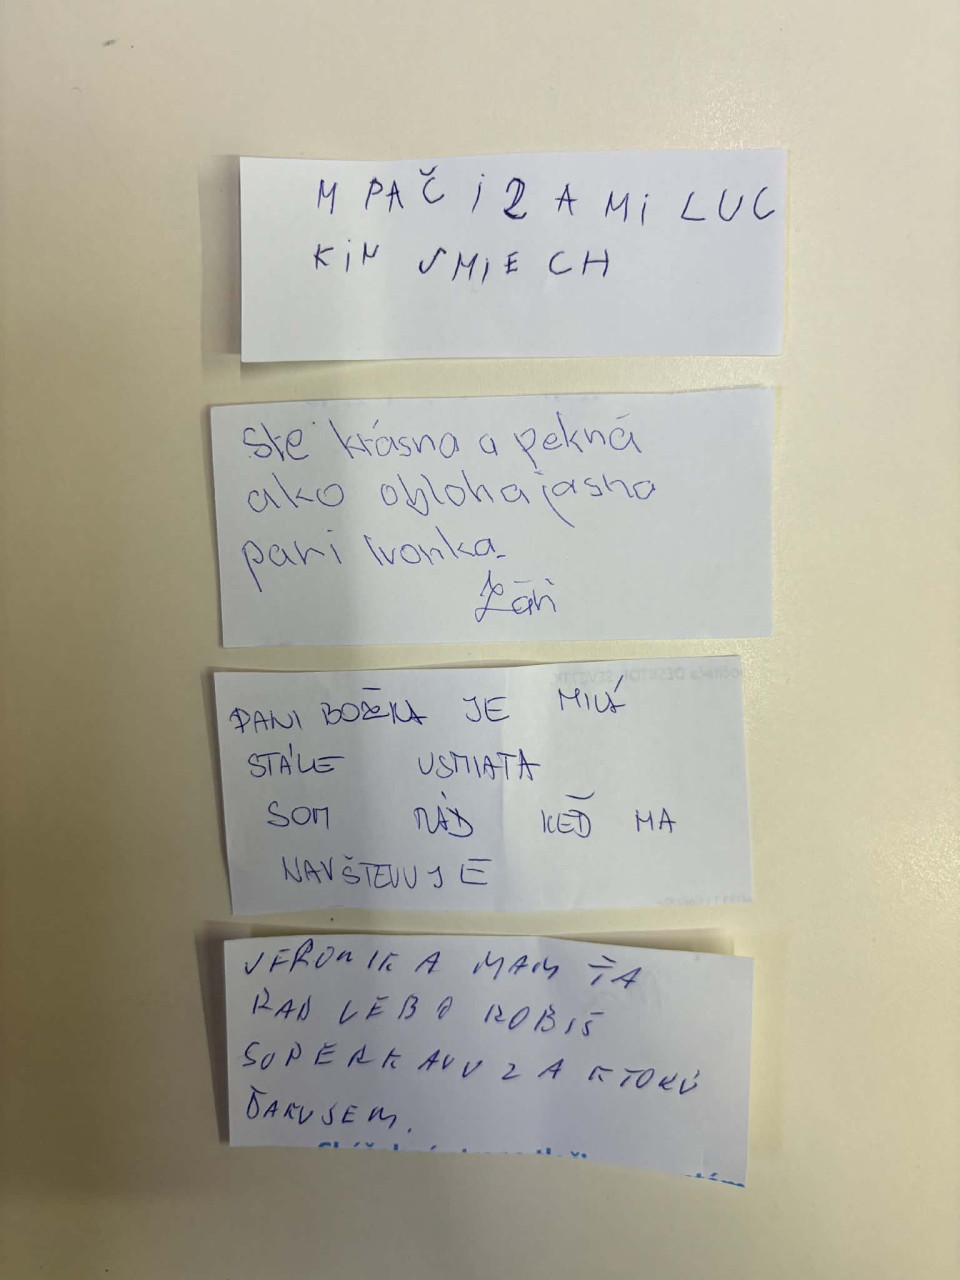 M PAČ I ZA MI LUC
KIN SMIECH
Ste krásna a pekná
ako obloha jasna
pani Ivonka.
PANI BOŽKA JE MILÁ
STÁLE USMIATA
SOM RÁD KEĎ MA
NAVŠTEVUJE
VERONIKA MAM ŤA
RAD LEBO ROBIŠ
SUPER KAVU ZA KTORÚ
ĎAKUJEM.